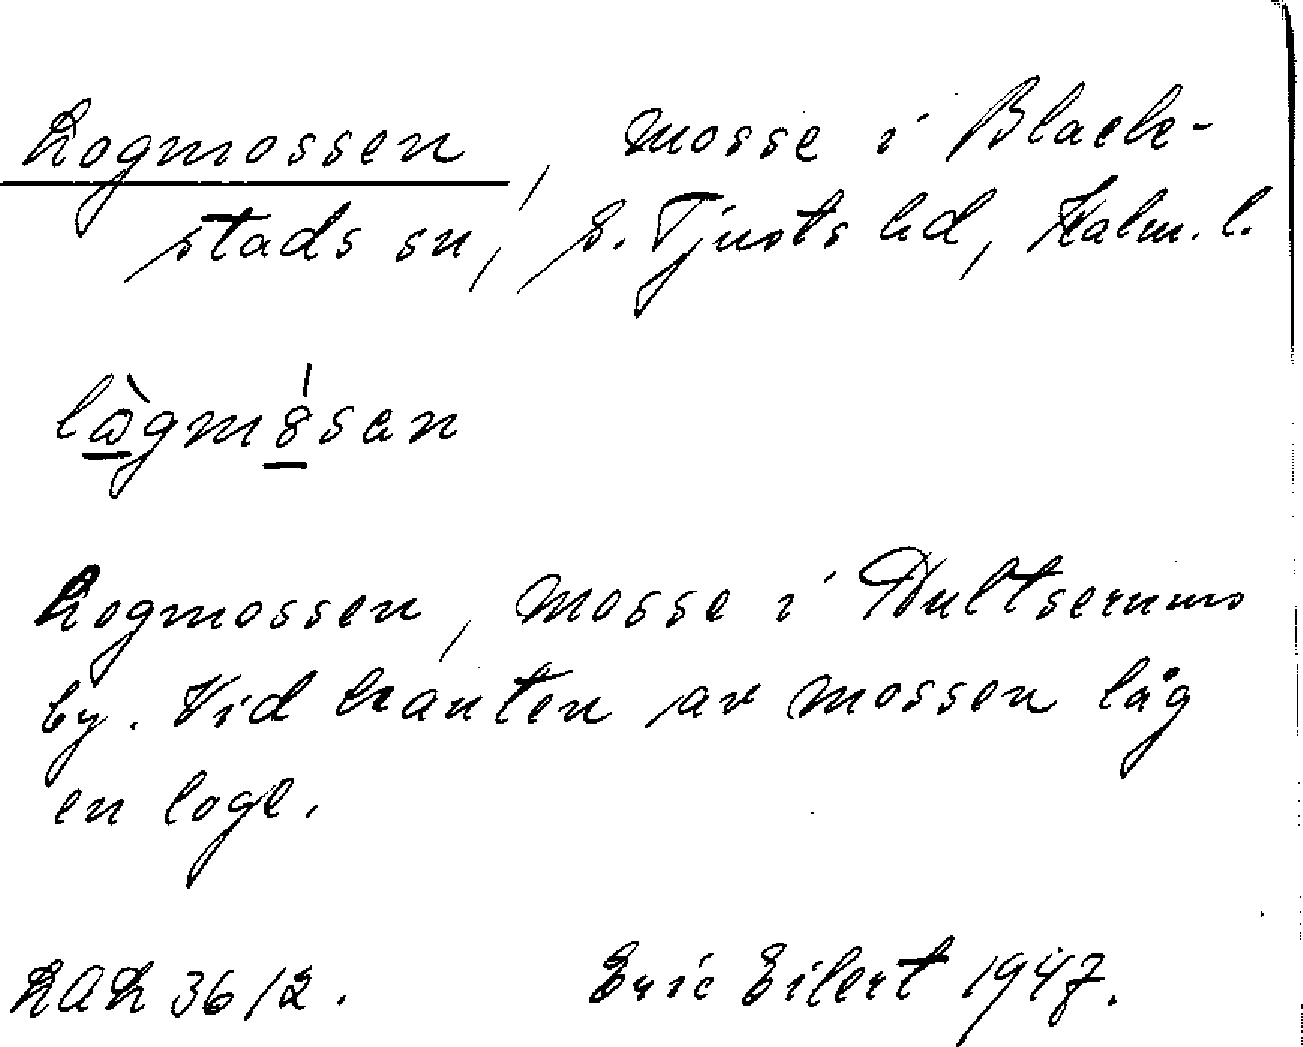 Logmossen, mosse i Black-
stads sn, S. Tjusts hd, Kalm. l.
lògmósan
Logmossen, mosse i Hultserums
by. Vid kanten av mossen låg
en loge.
LAL 36/2. Eric Eilert 1947.